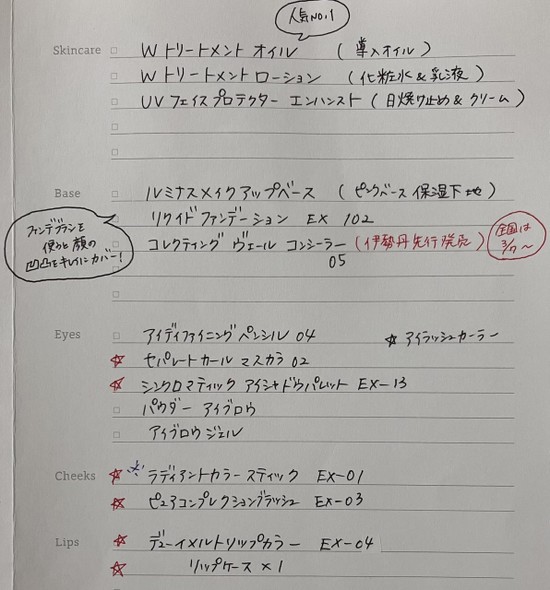 人気NO.1
Skincare
W トリートメント オイル (導入オイル)
W トリートメント ローション (化粧水&乳液)
UV フェイスプロテクター エンハンスト (日焼け止め&クリーム)
Base
ルミナスメイクアップベース (ピンクベース 保湿下地)
リクイドファンデーション EX 102
コレクティング ヴェール コンシーラー (伊勢丹先行発売)
05
全国は
3/7〜
ファンデブラシを
使うと顔の
凹凸をキレイにカバー!
Eyes
アイディファイニングペンシル 04
☆ アイラッシュカーラー
☆ セパレートカール マスカラ 02
☆ シンクロマティック アイシャドウパレット EX-13
パウダー アイブロウ
アイブロウ ジェル
Cheeks
☆ ※ ラディアントカラー スティック EX-01
☆ ピュアコンプレクションブラッシュ EX-03
Lips
☆ デューイメルトリップカラー EX-04
☆ リップケース ×1